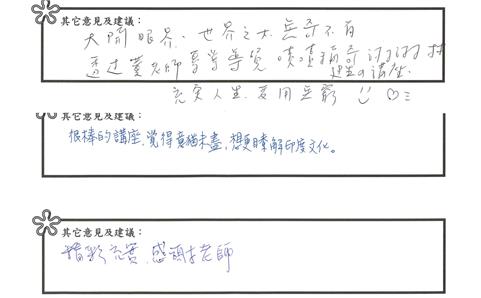 其它意見及建議：
大開眼界、世界之大無奇不有
透過 老師 導覽 嘖嘖稱奇的
講座
充實人生受用無窮
其它意見及建議：
很棒的講座，覺得意猶未盡，想更瞭解印度文化。
其它意見及建議：
精彩充實，感謝 老師